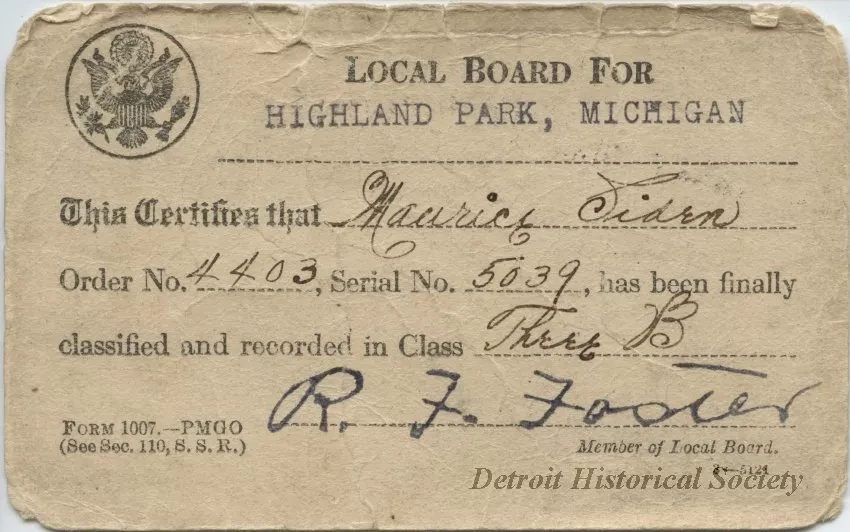 LOCAL BOARD FOR
HIGHLAND PARK, MICHIGAN
This Certifies that Maurice Siden
Order No. 4403, Serial No. 5039, has been finally
classified and recorded in Class Three B
R. F. Foster
FORM 1007.—PMGO
(See Sec. 110, S. S. R.)
Member of Local Board.
3—5124
Detroit Historical Society